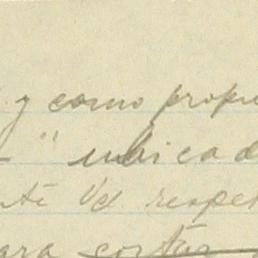 y como propi
" ubicad
nte Vd respet
ara cortar